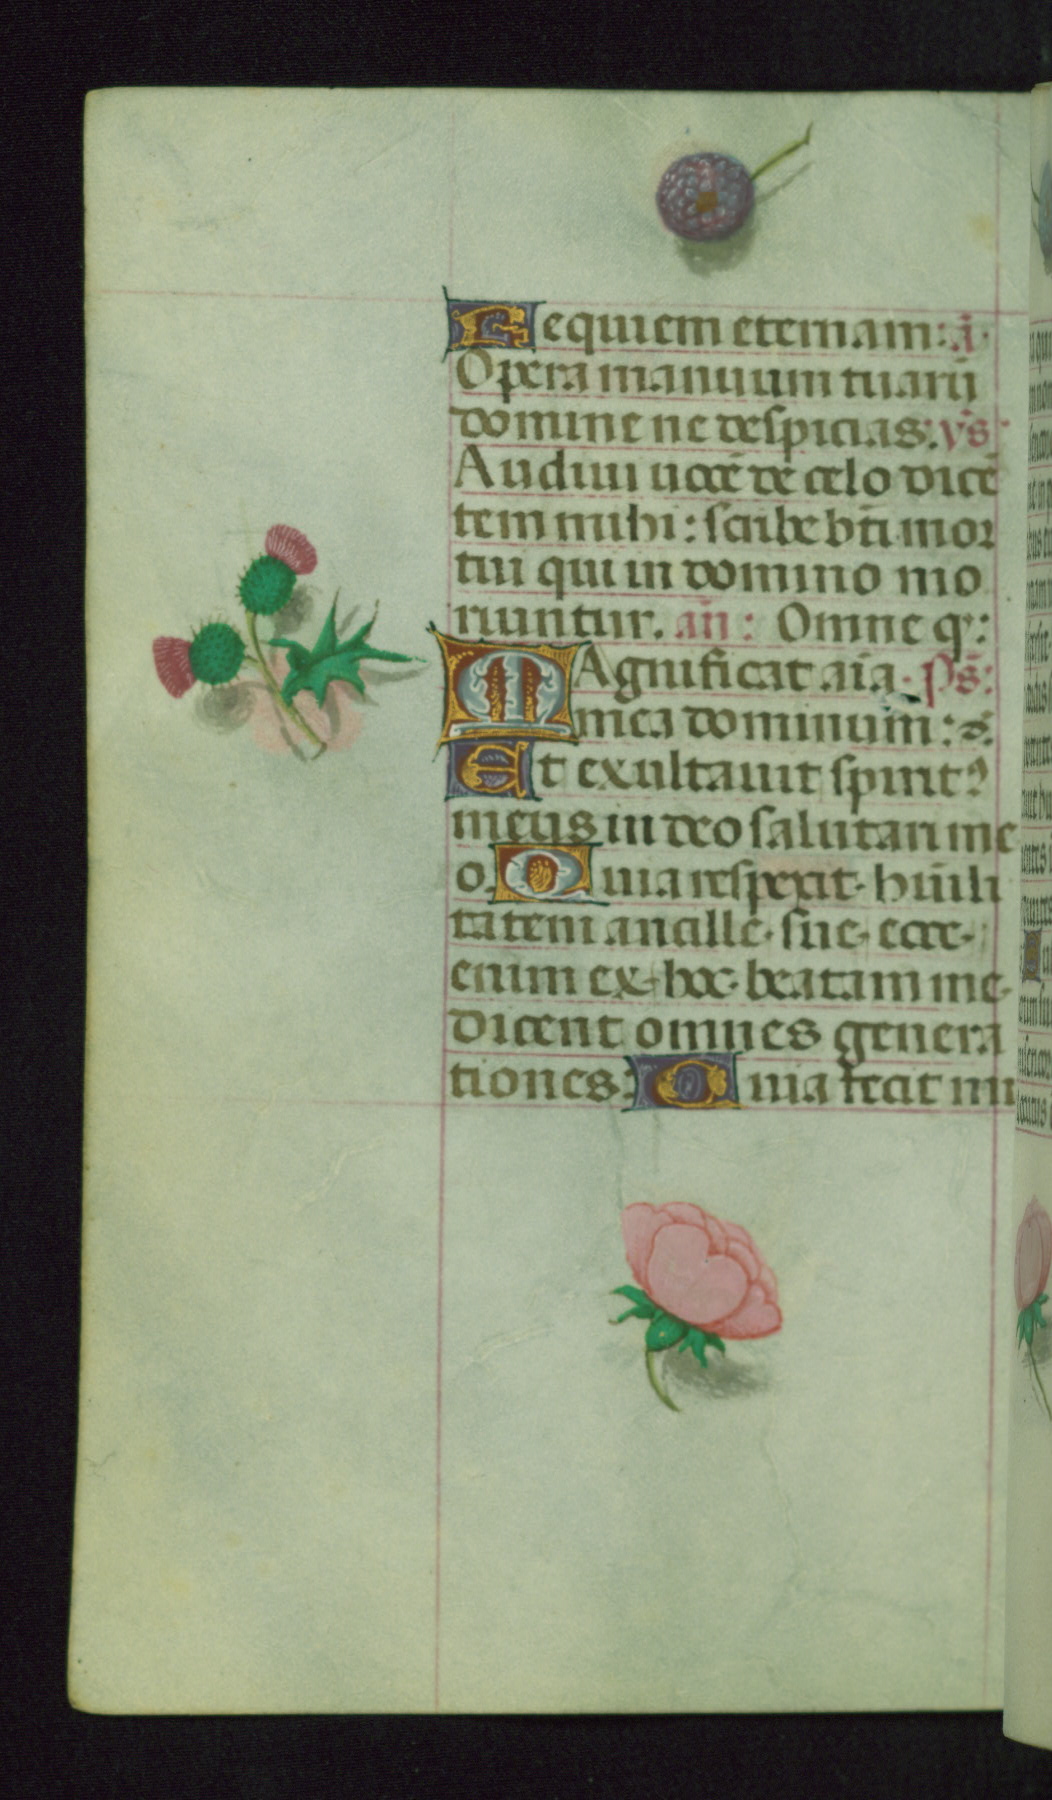 Requiem eternam: a̅.
Opera manuum tuarū
domine ne despicias. vs̅
Audiui uocē de celo dicē
tem mihi: scribe bt̄i mor
tui qui in domino mo
riuntur. an̄: Omne q̕:
MAgnificat aīa. ps̄:
mea dominum: 
Et exultauit spiritꝰ
meus in deo salutari me
o. Quia respexit. humili
tatem ancille. sue. ecce.
enim ex. hoc. beatam me.
dicent omnes genera
tiones. Quia fecit mi